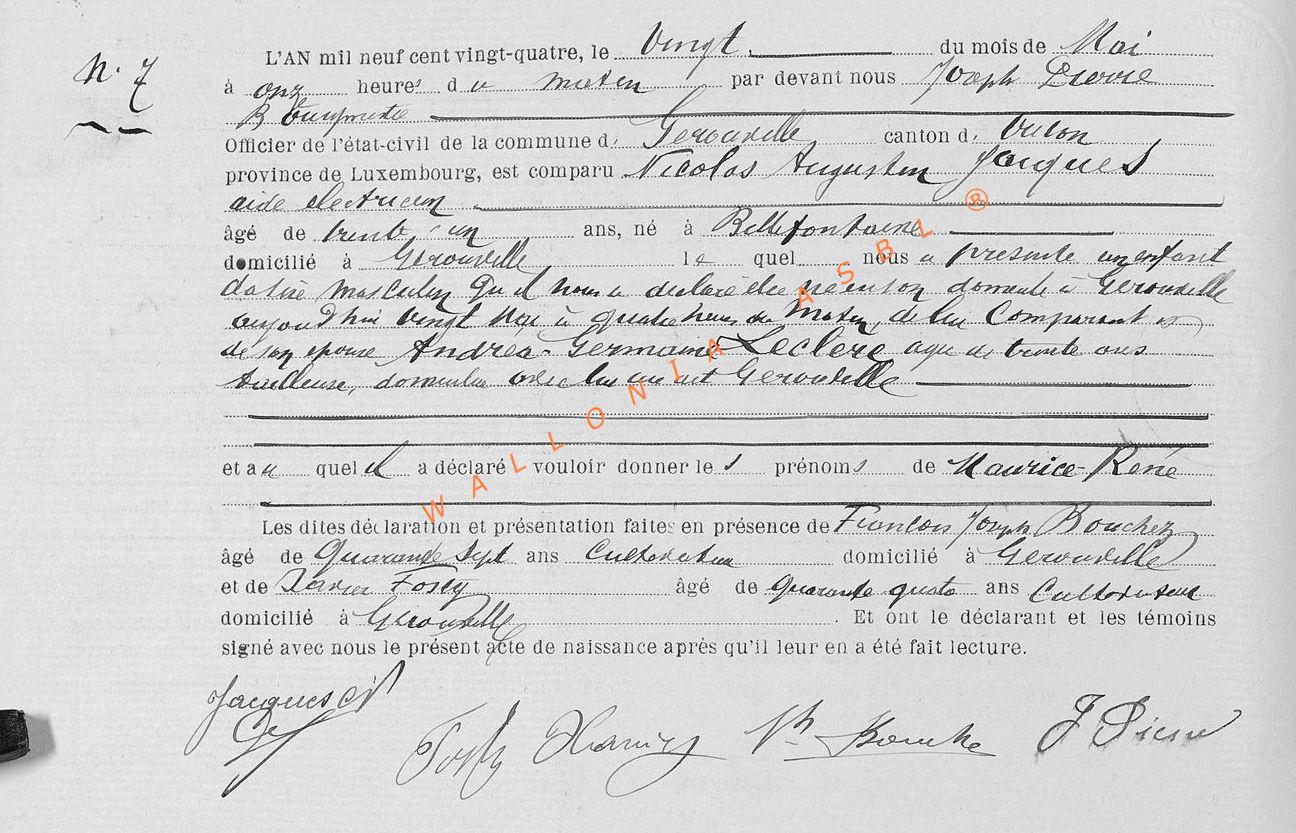 N. 7
L'AN mil neuf cent vingt-quatre, le Vingt du mois de Mai
à onz heures du matin par devant nous Joseph Pierre
Officier de l'état-civil de la commune d. Gerouville canton d. Virton
province de Luxembourg, est comparu Nicolas Augustin Jacques
aide electricien
âgé de trente-un ans, né à Bellefontaine
domicilié à Gerouville le quel nous a présenté un enfant
masculin qu'il nous a déclaré être né en son domicile à Gerouville
aujourd'hui vingt Mai à quatre heures du Matin, de lui Comparant et
de son epouse Andréa-Germaine Leclère agée de trente ans
tailleuse, domiciliée avec lui Gerouville
et au quel il a déclaré vouloir donner les prénoms de Maurice-René
Les dites déclaration et présentation faites en présence de François Joseph Bouchez
âgé de Quarante Sept ans Cultivateur domicilié à Gerouville
et de Xavier Fosty âgé de Quarante quatre ans Cultivateur
domicilié à Gerouville. Et ont le déclarant et les témoins
signé avec nous le présent acte de naissance après qu'il leur en a été fait lecture.
Jacques
Fosty Xavier
J Pierre
WALLONIA ASBL ®